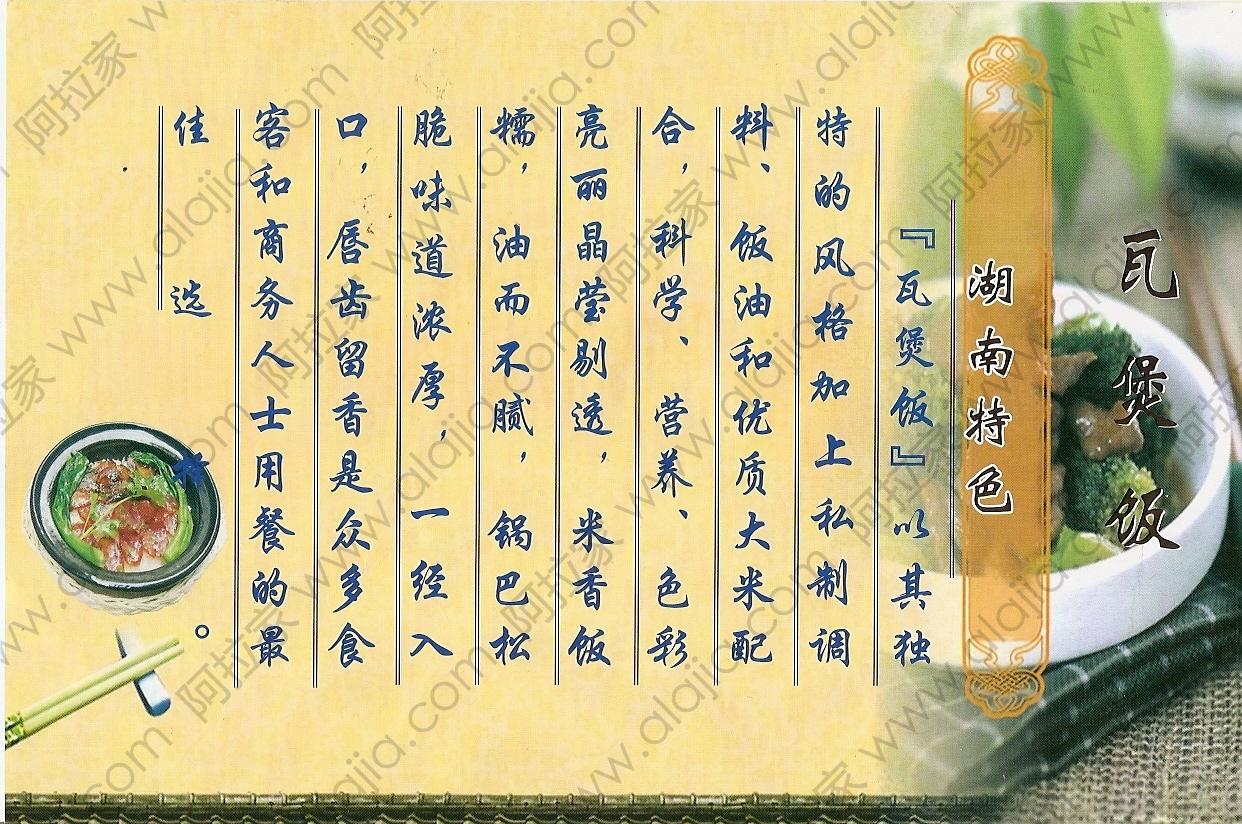 瓦煲饭
湖南特色
『瓦煲饭』以其独
特的风格加上私制调
料、饭油和优质大米配
合,科学、营养、色彩
亮丽晶莹剔透,米香饭
糯,油而不腻,锅巴松
脆味道浓厚,一经入
口,唇齿留香是众多食
客和商务人士用餐的最
佳选择。
阿拉家 www.alajia.com